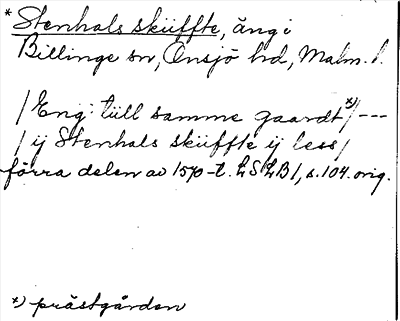 * Stenhals skiiffte, äng i
Billinge sn, Onsjö hd, Malm. l.
/Eng: tiill samme gaardt*)/---
/ij Stenhals skiiffte ij less/
förra delen av 1570-t. LSLB1, s. 104. orig.
*) prästgården